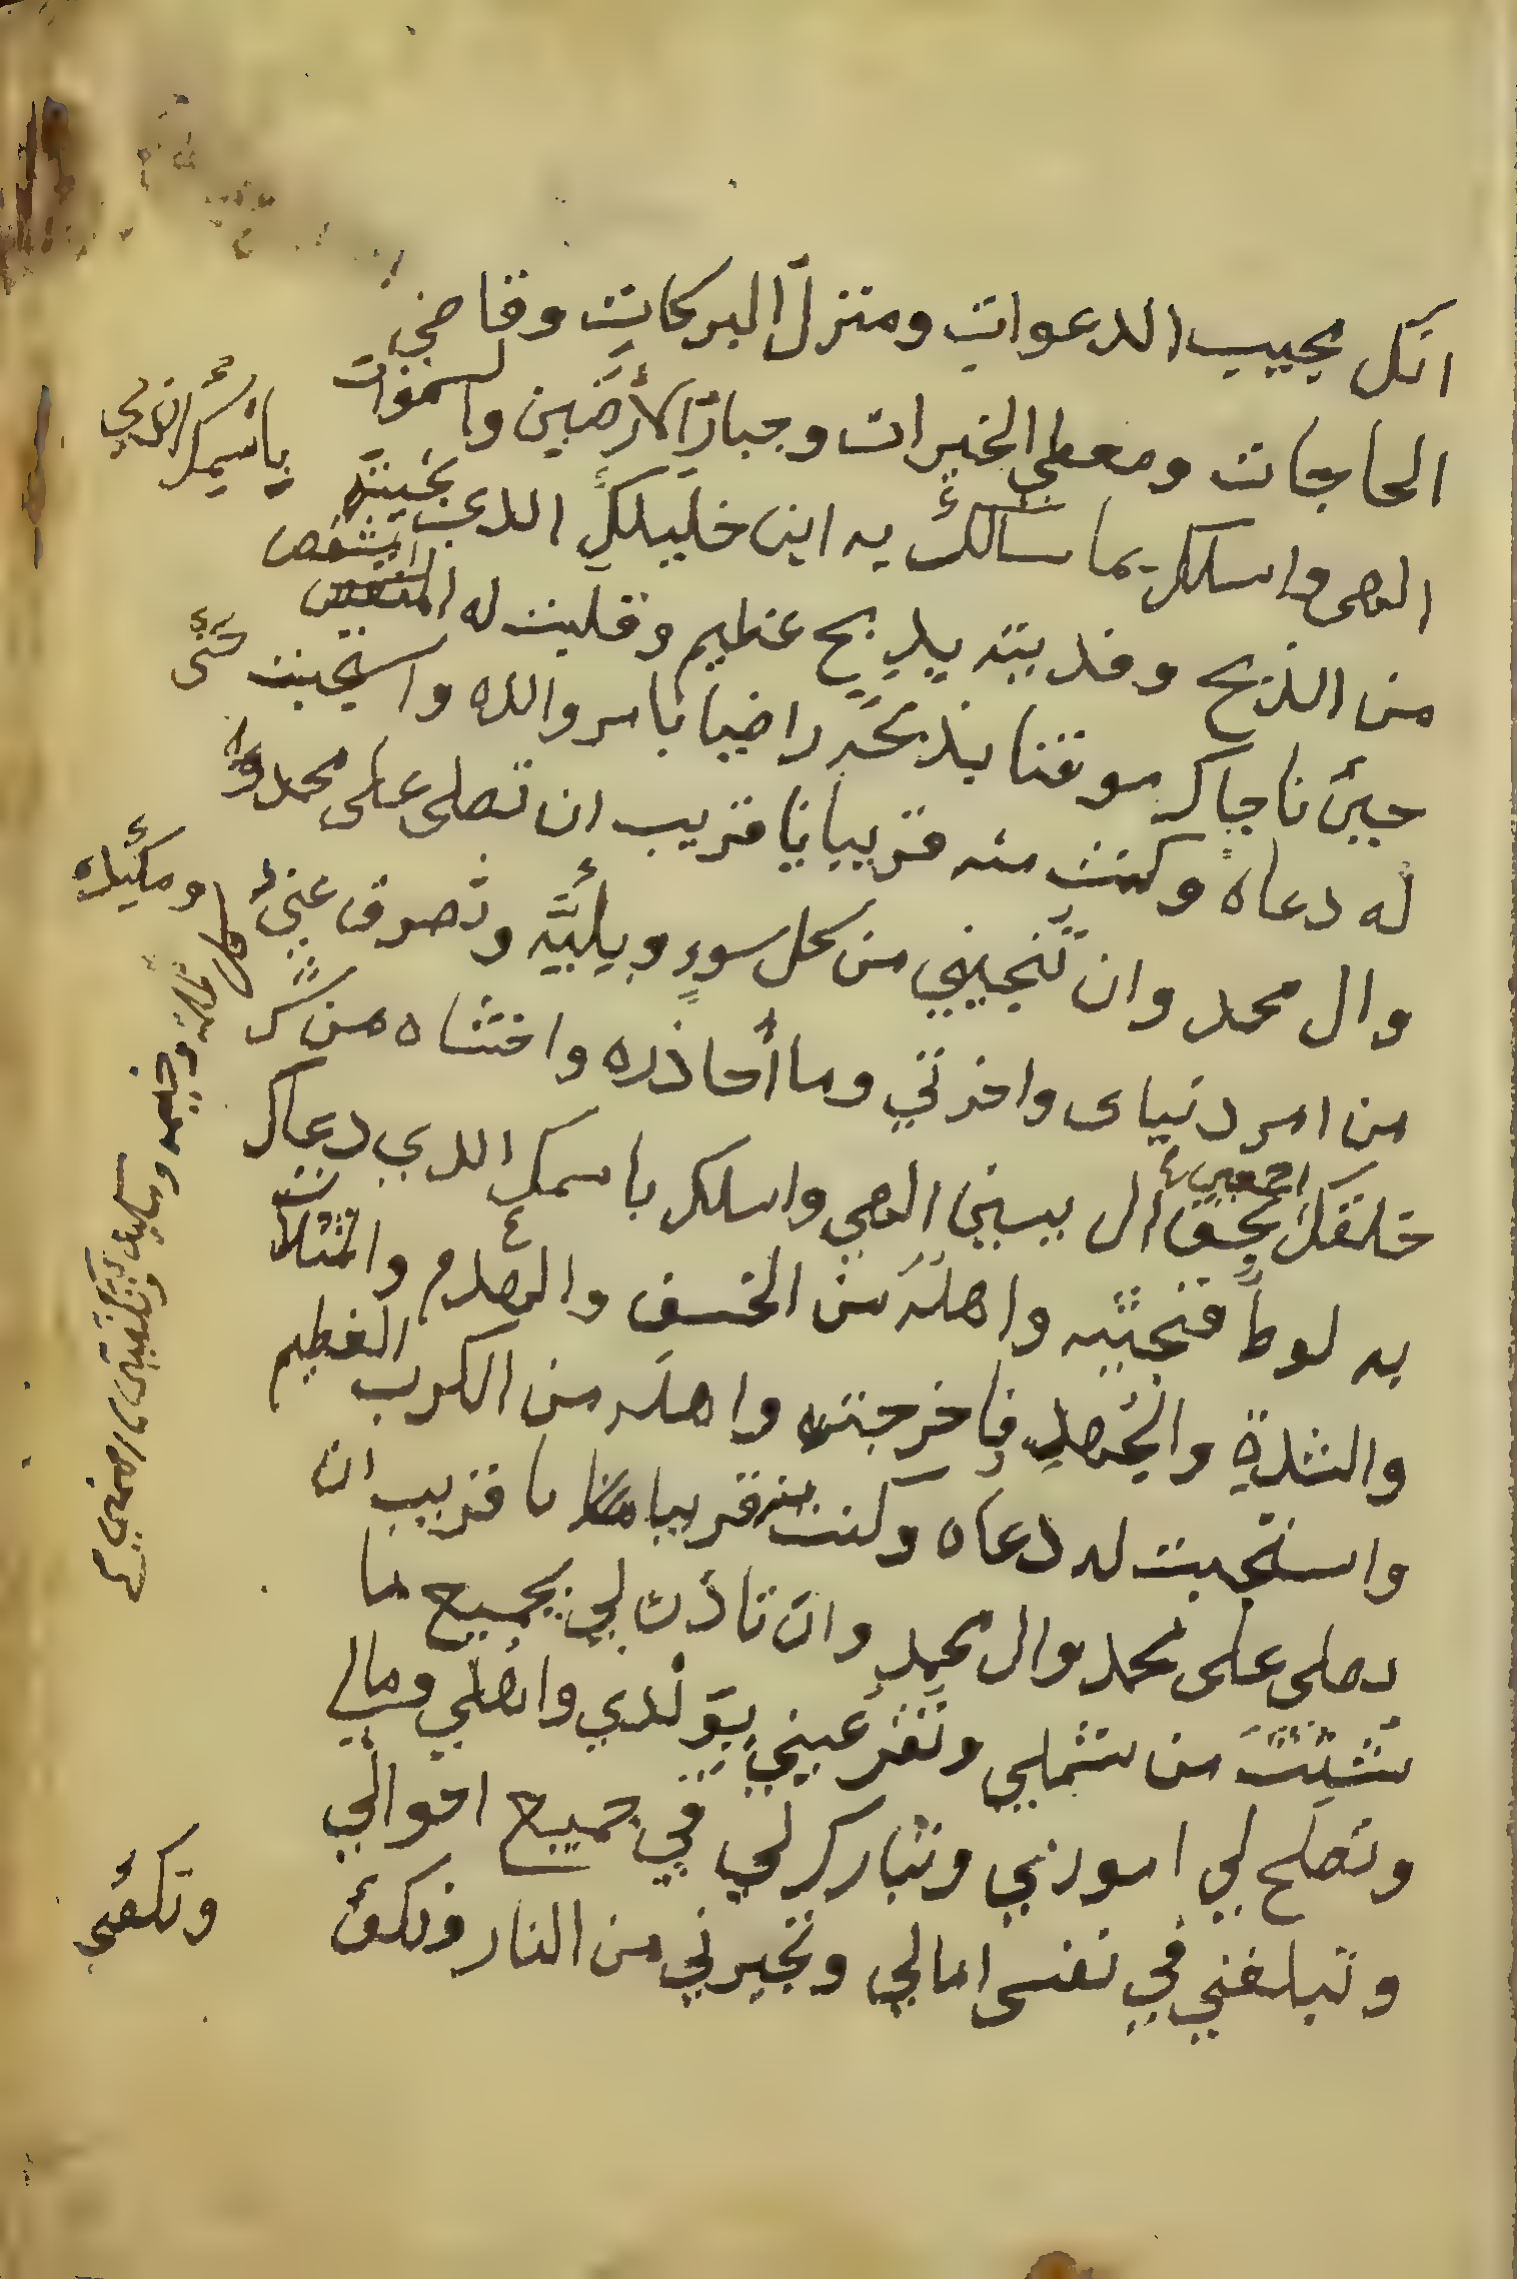 انك مجيب الدعوات ومنزل البركات وقاضي
الحاجات ومعطي الخيرات وجبار الأرضين والسموات
الهى واسلك بما سألك به ابن خليلك الذي نجيته
من الذبح وفديته بذبح عظيم وقلبت له المشقص
حين ناجاك موقنا بذبحه راضيا بامر والده واستجبت
له دعاه وكنت منه قريبا يا قريب ان تصلى على محمد
وال محمد وان تنجيني من كل سوء وبليه وتصرف عني
من امر دنياى واخرتي وما أحاذره واخشاه من شر
خلقك اجمعين بحق ال يسين الهي واسلك باسمك الذي دعاك
به لوطا فنجيته واهله من الخسف والهدم والمثلات
والشدة والجهد فاخرجته واهله من الكرب العظيم
واستجبت له دعاه وكنت منه قريبا يا قريب ان
تصلى على محمد وال محمد وان تاذن لي بجميع ما
شتت من شملي وتقر عيني بولدي واهلي ومالي
وتصلح لي اموري وتبارك لي في جميع احوالي
وتبلغني في نفسى امالي وتجيرني من النار
باسمك الذي
ومكيدة
كل ظلمة وخيمه
وتكفني